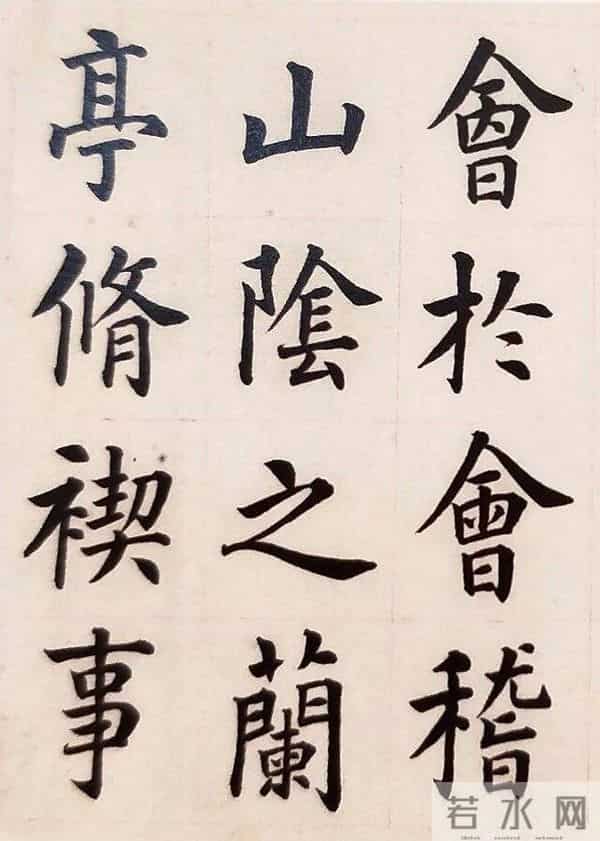 會於會稽
山陰之蘭
亭脩禊事
若水网